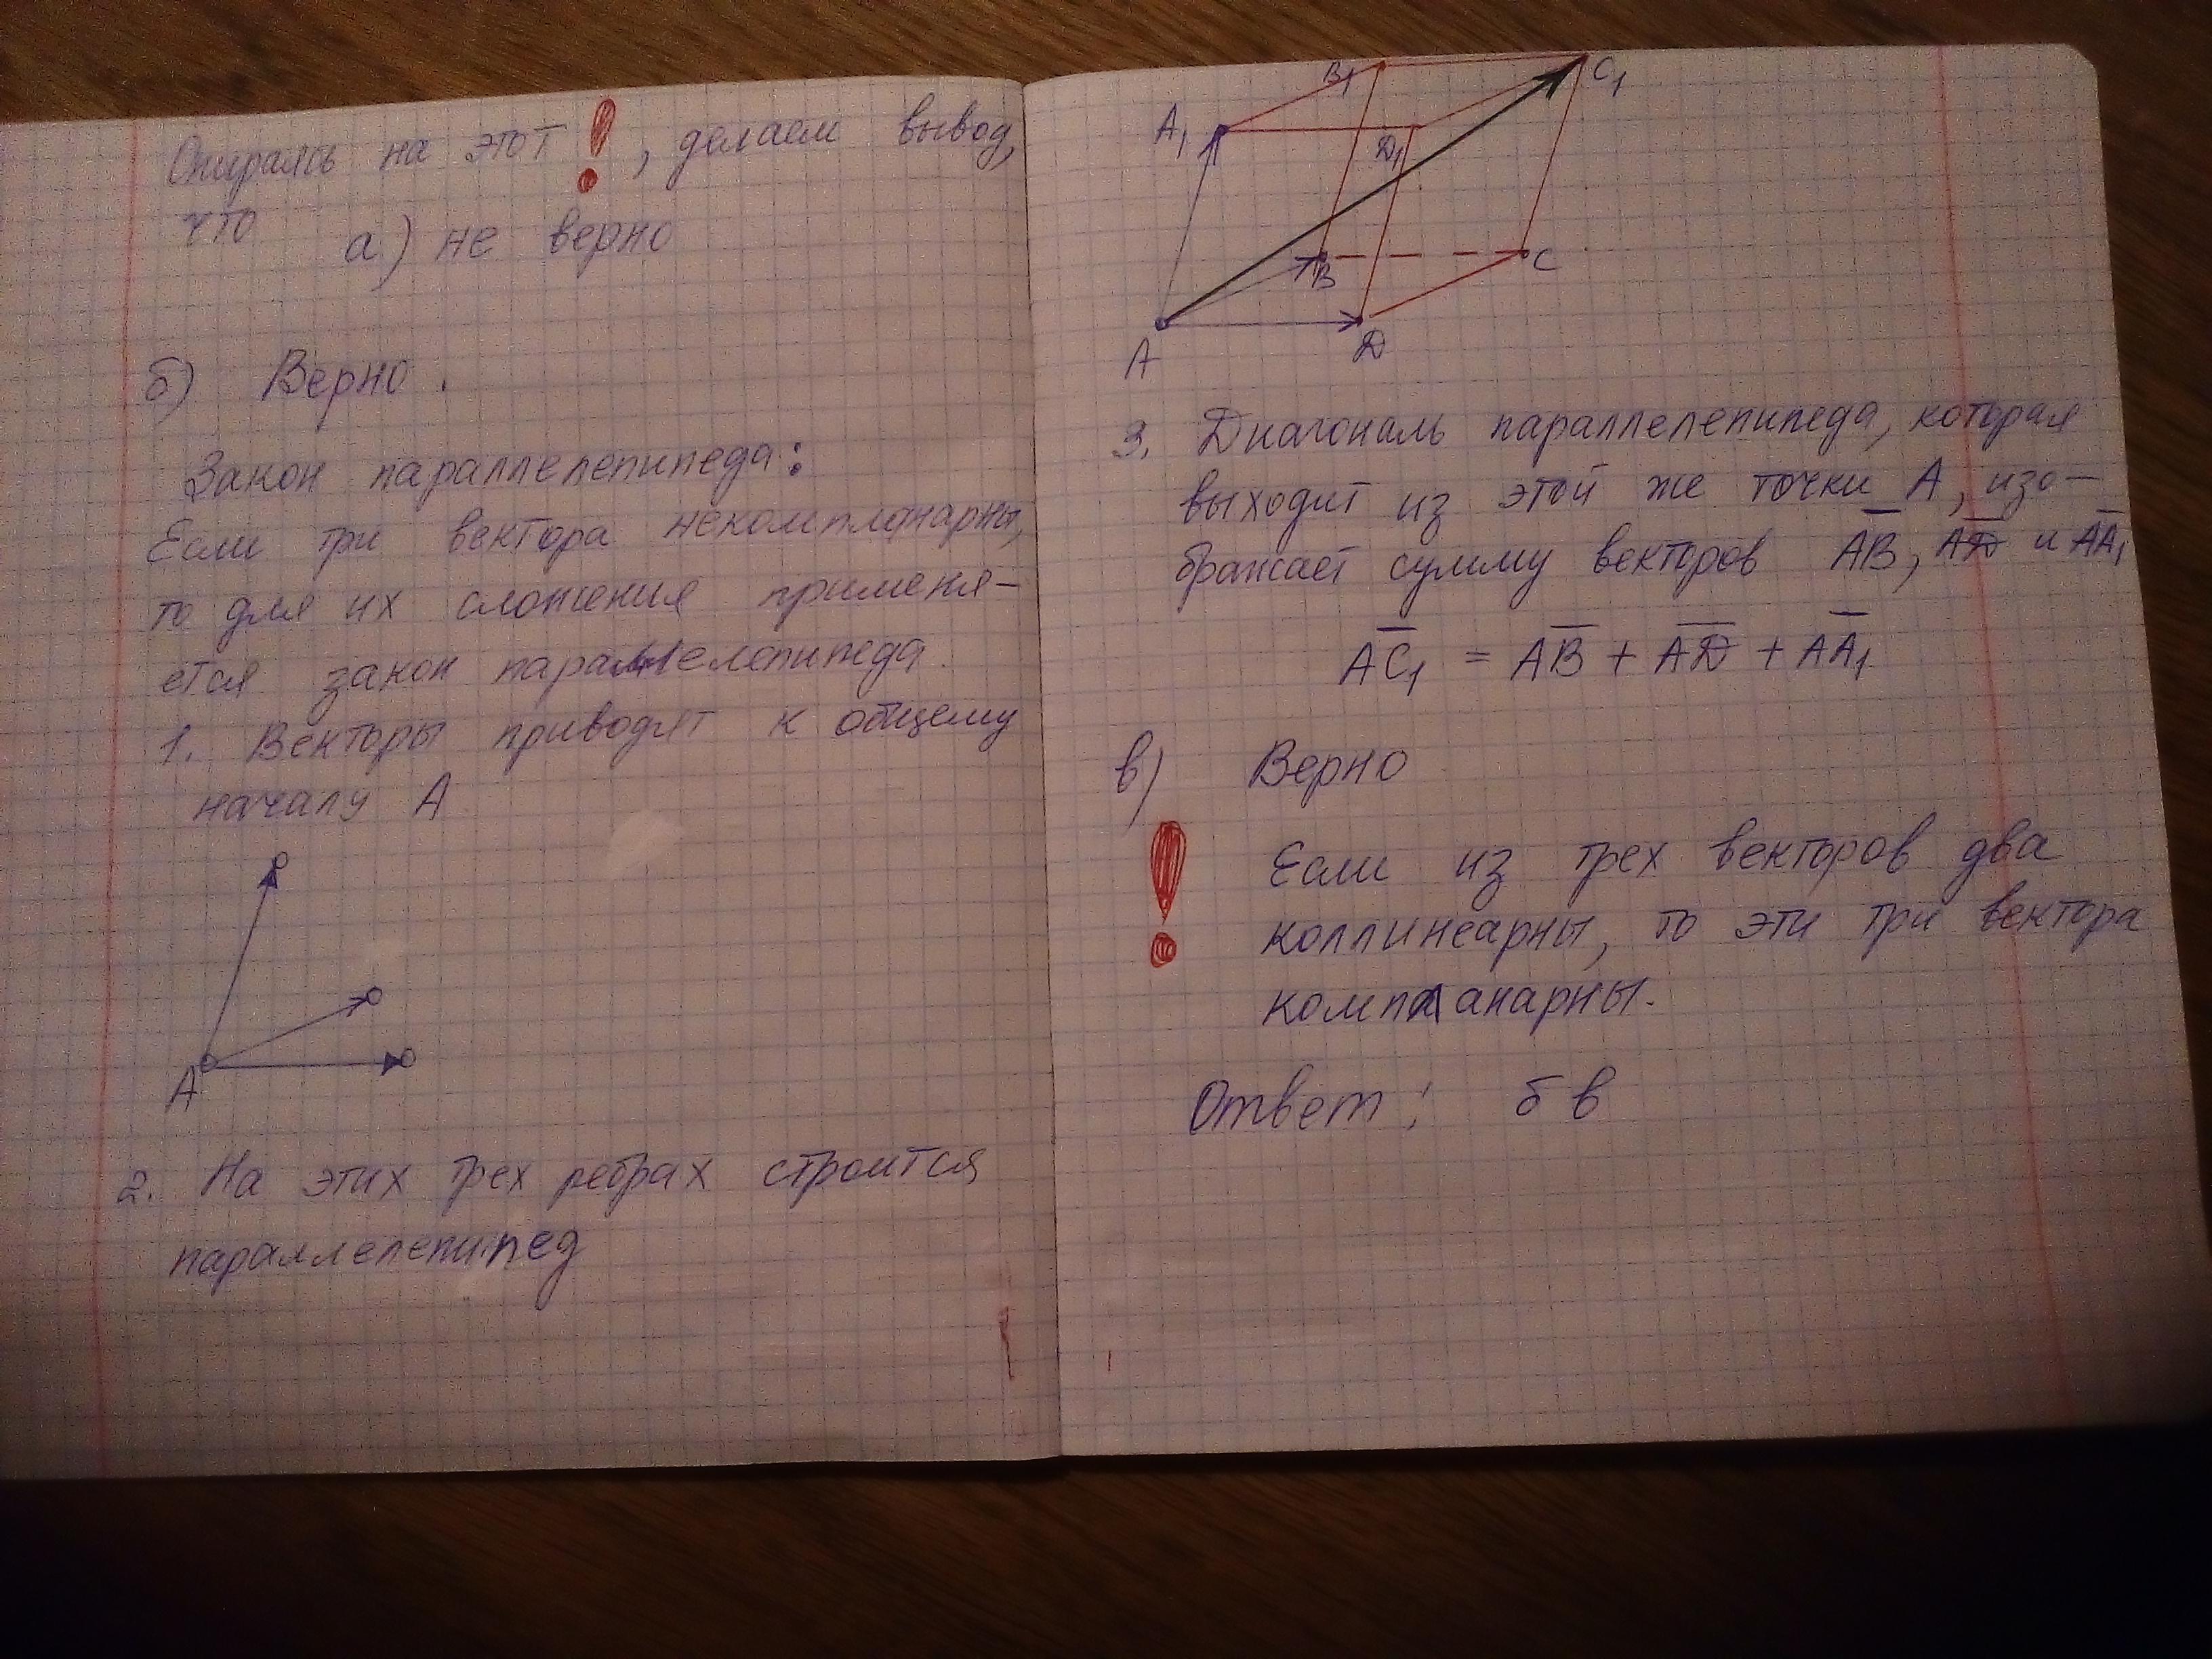 Опираясь на этот ! , делаем вывод,
что а) не верно
б) Верно .
Закон параллелепипеда:
Если три вектора некомпланарны,
то для их сложения применя-
ется закон параллелепипеда.
1. Векторы приводят к общему
началу А
А
2. На этих трех ребрах строится
параллелепипед
B₁
C₁
A₁
D₁
B
C
A
D
3. Диагональ параллелепипеда, которая
выходит из этой же точки А, изо-
бражает сумму векторов A̅B̅, A̅D̅ и A̅A̅₁
A̅C̅₁ = A̅B̅ + A̅D̅ + A̅A̅₁
в) Верно
! Если из трех векторов два
коллинеарны, то эти три вектора
компланарны.
Ответ: б в